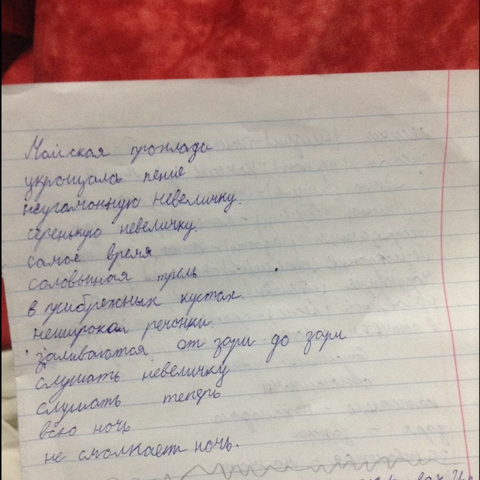 Майская прохлада
укрощала пение
неугомонную невеличку.
серенькую невеличку.
самое время
соловьиная трель
в прибрежных кустах.
неширокой речонки.
заливаются от зари до зари
слушать невеличку
слушать теперь
всю ночь
не смолкает ночь.